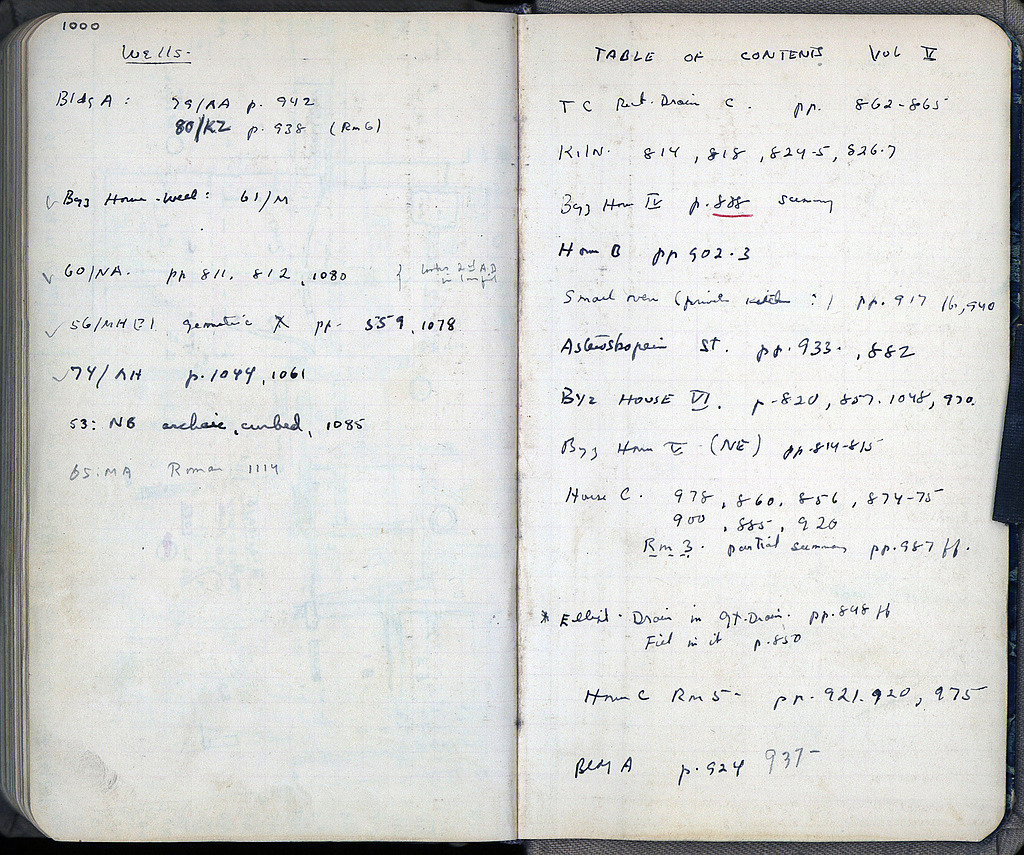 1000
Wells.
Bldg A: 79/AA p. 942
80/KZ p. 938 (Rm 6)
✓ Byz House - Well: 61/M
✓ 60/NA. pp 811, 812, 1080
✓ 56/MH geometric pp. 559, 1078
✓ 74/AH p. 1044, 1061
53:NB archaic, curbed, 1085
65:MA Roman 1114
TABLE OF CONTENTS VOL V
TC Rect. Drain C. pp. 862-865
KilN. 814, 818, 824-5, 826-7
Byz House IV p. 888 summary
House B pp 902-3
Small oven (private kitchen?) pp. 917 ff, 940
Asteroskopeion St. pp. 933, 882
BYZ HOUSE VI. p. 820, 857. 1048, 970.
Byz House V (NE) pp. 814-815
House C. 978, 860, 856, 874-75
900, 885, 920
Rm 3. partial summary pp. 987 ff.
* Ellipt. Drain in Gt. Drain. pp. 848 ff
Fill in it p. 850
House C Rm 5 - pp. 921. 920, 975
Bldg A p. 924 937-